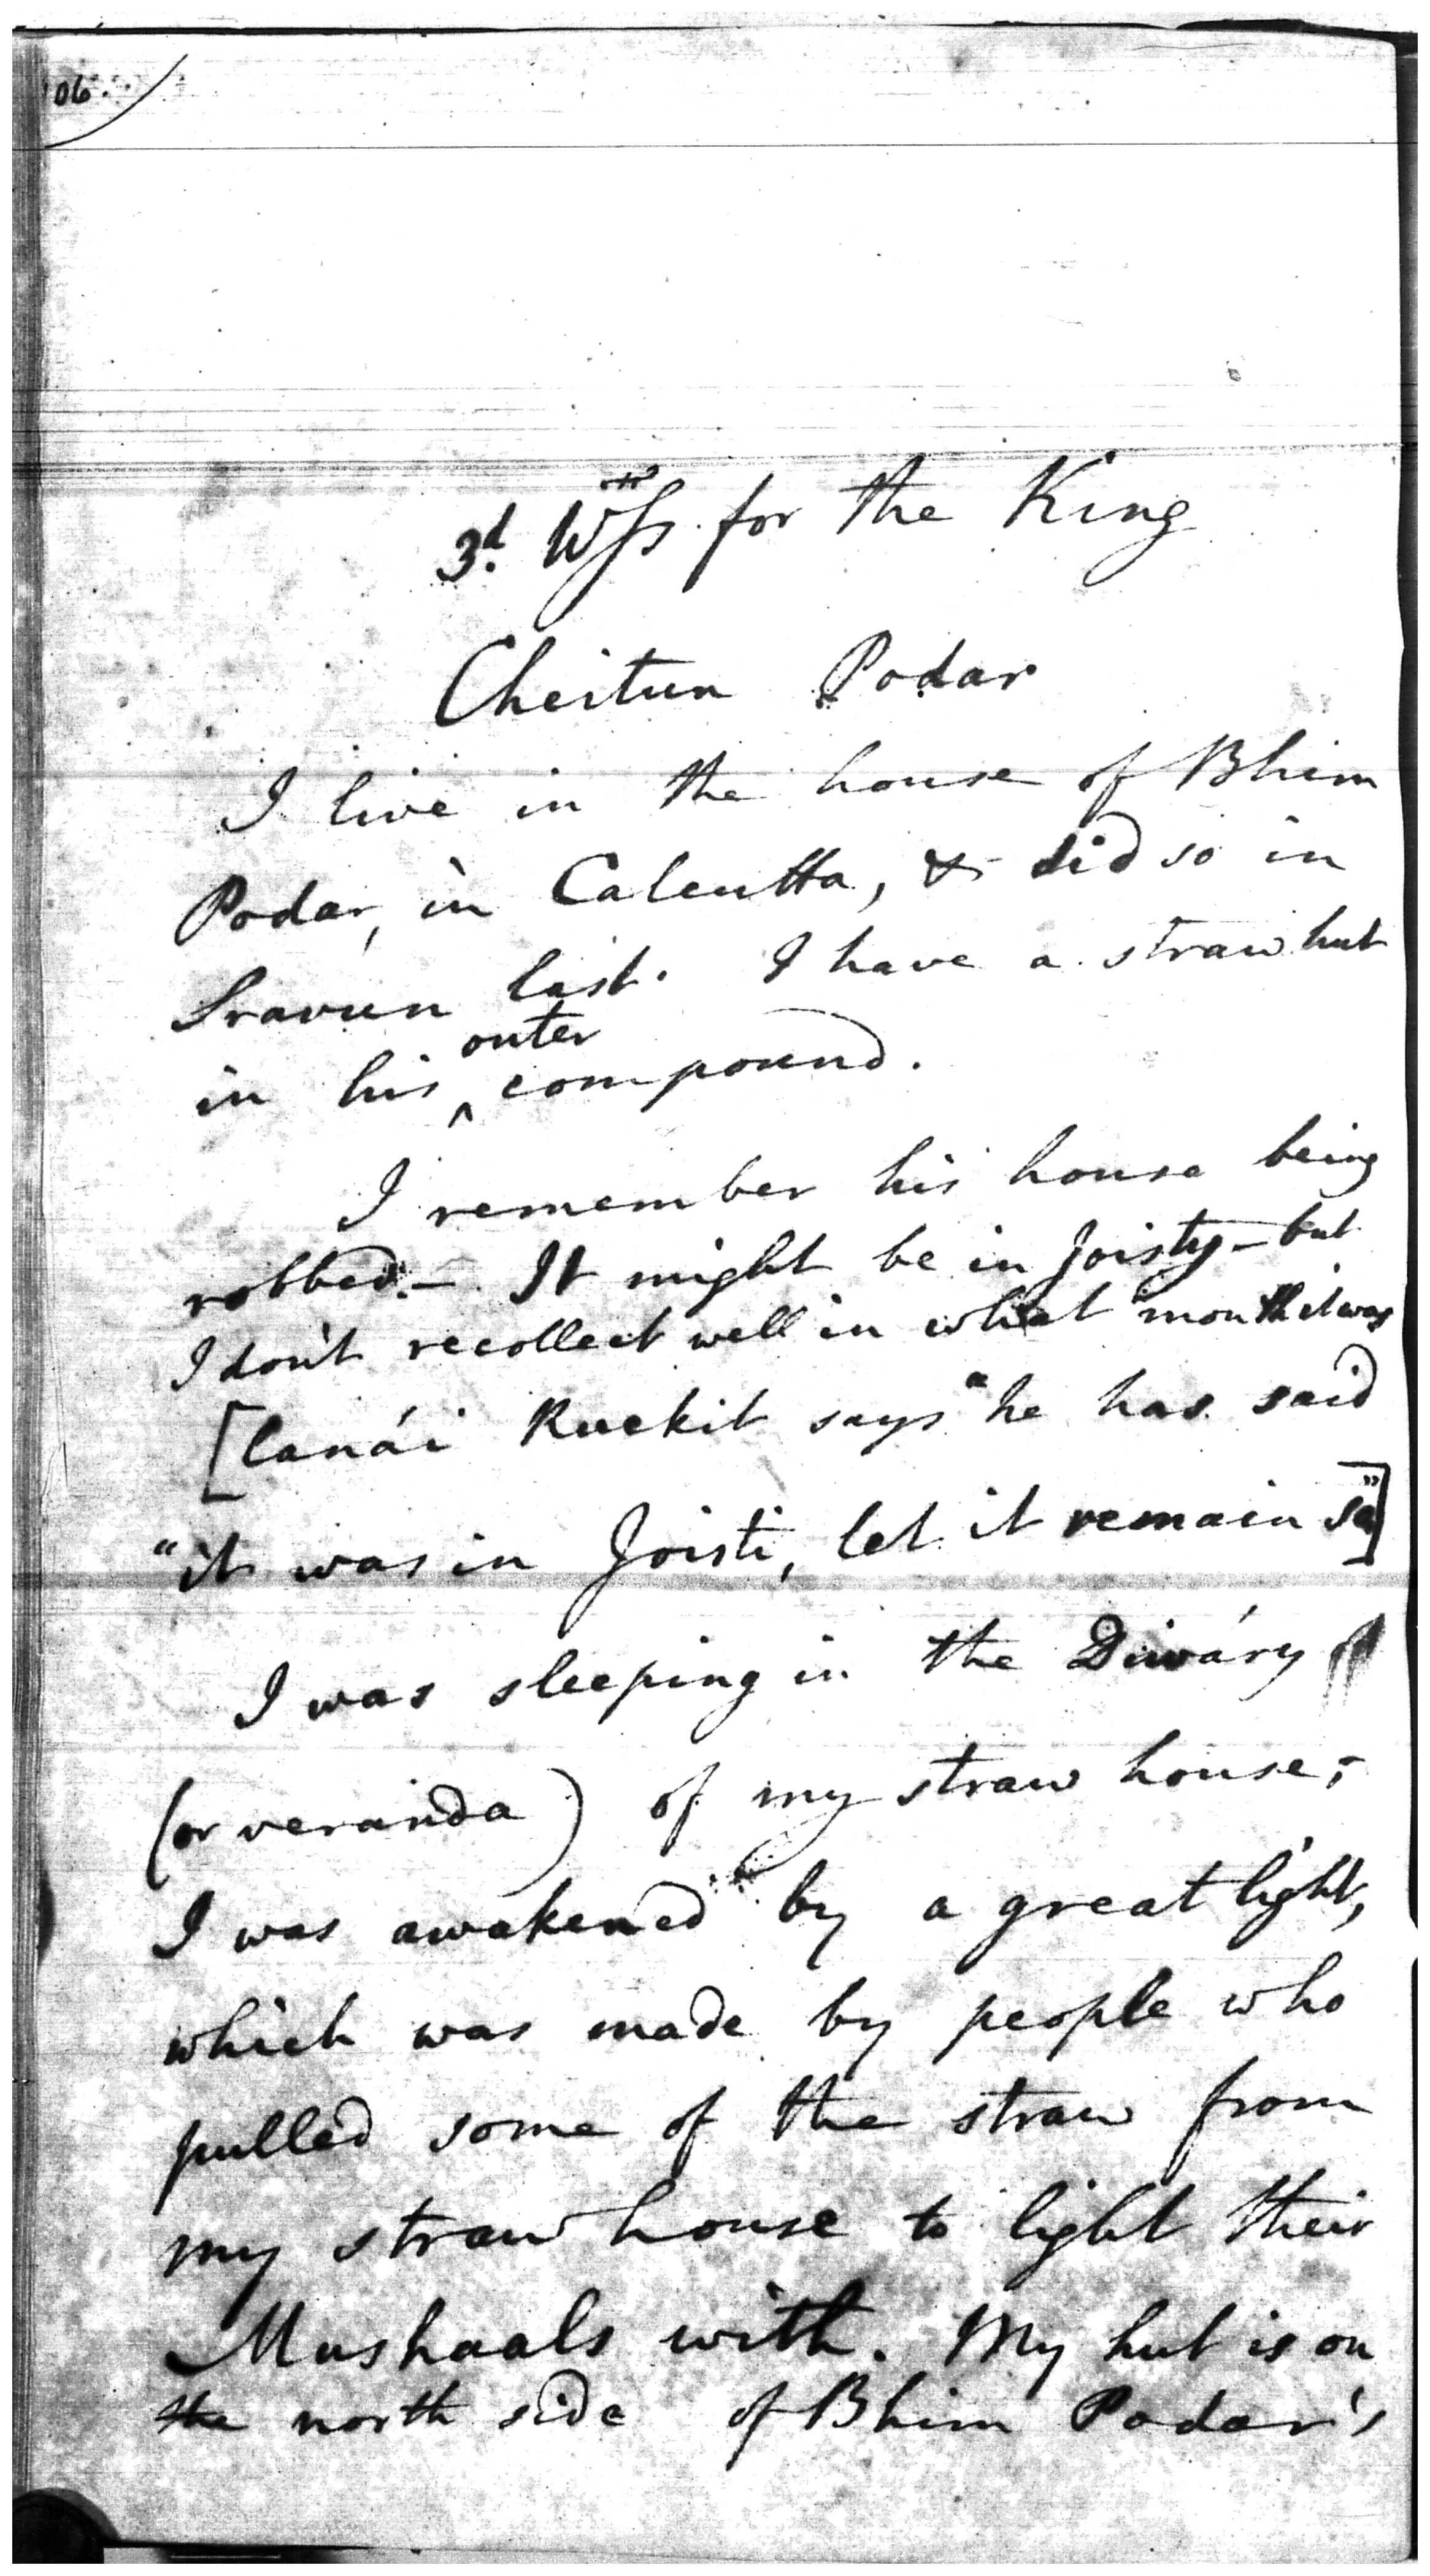 106
3d. Wss. for the King
Cheitun Podar
I live in the house of Bhim
Podar, in Calcutta, & did so in
Sravun last. I have a straw hut
in his ^ outer compound.
I remember his house being
robbed. – It might be in Joisty – but
I don't recollect well in what month it was
[Canái Ruckit says "he has said
"it was in Joisti, let it remain so"]
I was sleeping in the Diwáry
(or veranda) of my straw house;
I was awakened by a great light,
which was made by people who
pulled some of the straw from
my straw house to light their
Mushaals with. My hut is on
the north side of Bhim Podar's